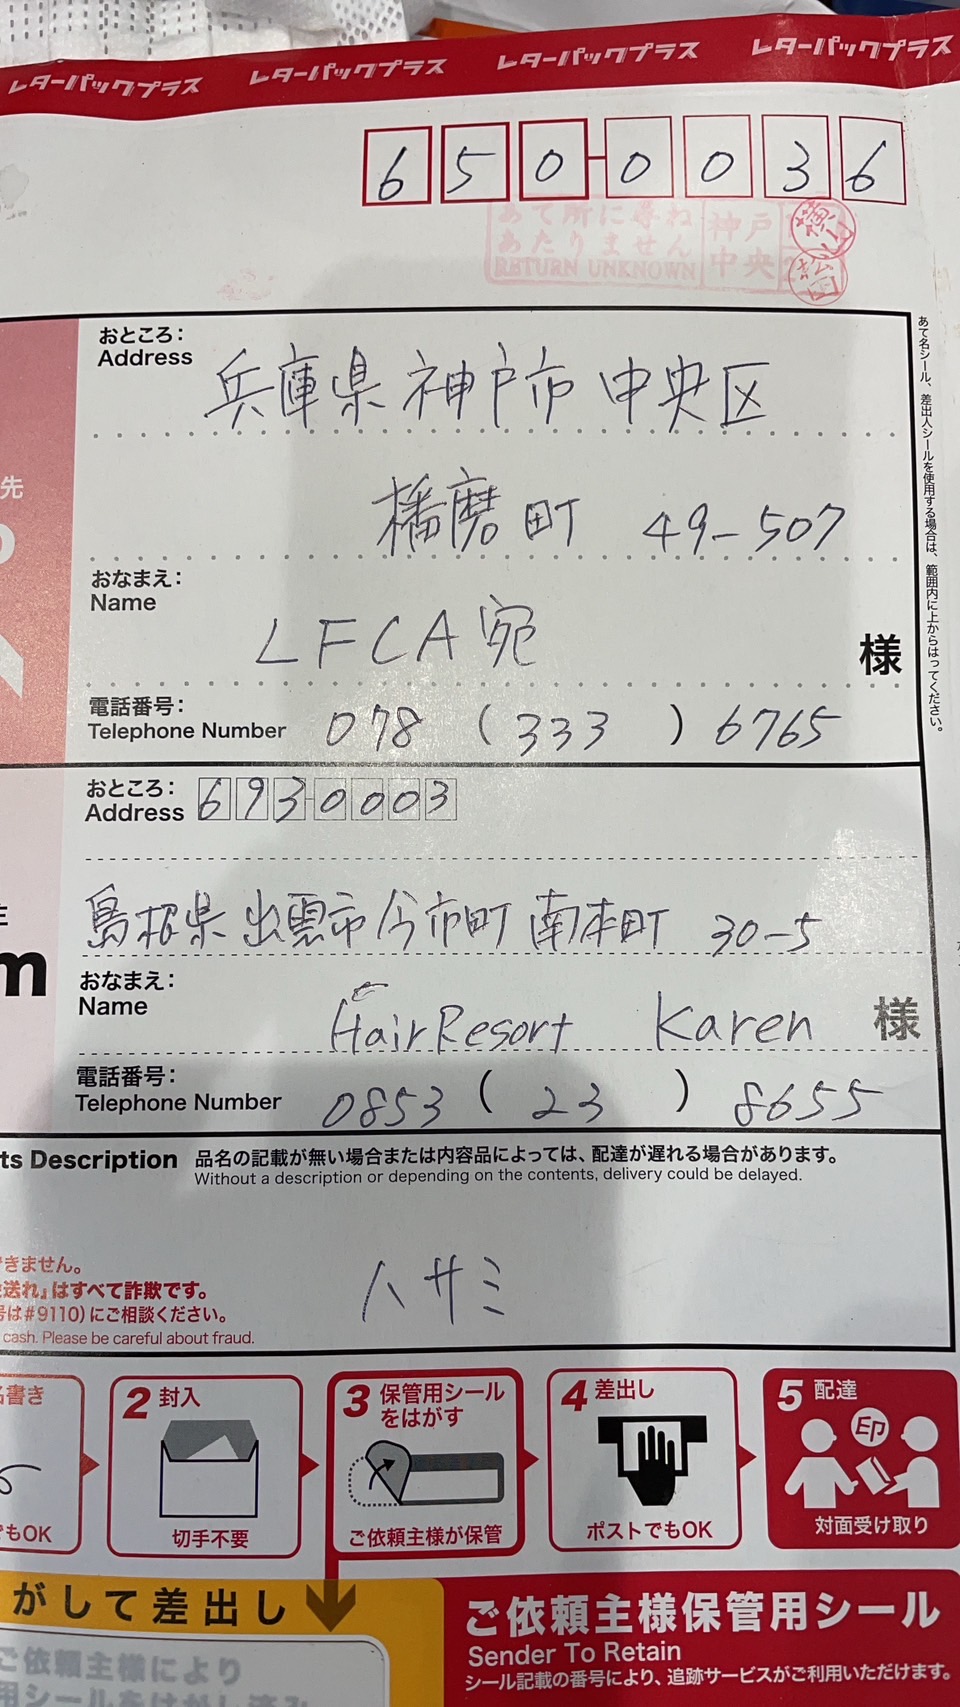 レターパックプラス レターパックプラス レターパックプラス レターパックプラス
650-0036
あて所に尋ね
あたりません
RETURN UNKNOWN
神戸
中央
おところ:
Address
兵庫県神戸市中央区
播磨町 49-507
先
おなまえ:
Name
LFCA宛
様
電話番号:
Telephone Number
078 (333) 6765
あて名シール、差出人シールを使用する場合は、範囲内に上からはってください。
おところ:
Address
693-0003
島根県出雲市今市町南本町 30-5
m
おなまえ:
Name
Hair Resort Karen
様
電話番号:
Telephone Number
0853 (23) 8655
ts Description 品名の記載が無い場合または内容品によっては、配達が遅れる場合があります。
Without a description or depending on the contents, delivery could be delayed.
ハサミ
きません。
送れ」はすべて詐欺です。
号は#9110)にご相談ください。
cash. Please be careful about fraud.
名書き
でもOK
2 封入
切手不要
3 保管用シール
をはがす
ご依頼主様が保管
4 差出し
ポストでもOK
5 配達
印
対面受け取り
がして差出し
ご依頼主様により
用シールをはがし済み
ご依頼主様保管用シール
Sender To Retain
シール記載の番号により、追跡サービスがご利用いただけます。